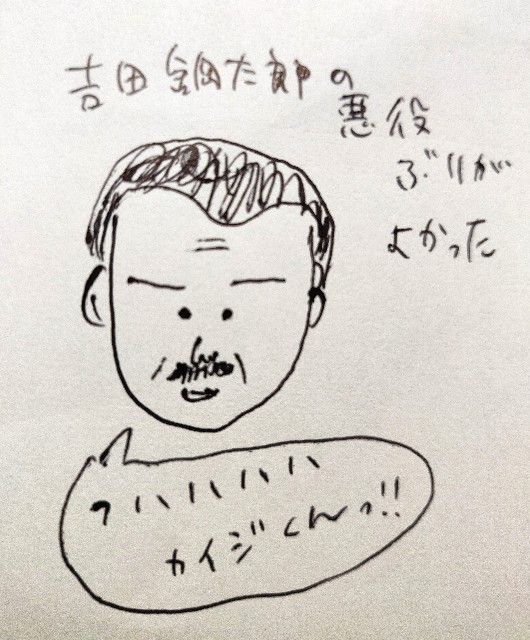 吉田鋼太郎の
悪役
ぶりが
よかった
ワハハハハ
カイジくんっ!!